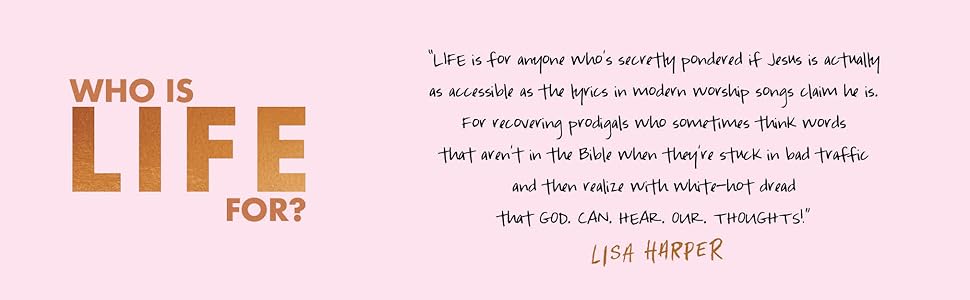 WHO IS
LIFE
FOR?
"LIFE is for anyone who's secretly pondered if Jesus is actually
as accessible as the lyrics in modern worship songs claim he is.
For recovering prodigals who sometimes think words
that aren't in the Bible when they're stuck in bad traffic
and then realize with white-hot dread
that GOD. CAN. HEAR. OUR. THOUGHTS!"
LISA HARPER